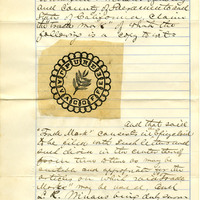 and County of Sacramento and
State of California, claim
the Trade Mark of which the
following is a copy to wit:
And that said
"Trade Mark" consists in
to be filled with such letters and
such device in the center thereof
from time to time as may be
suitable and appropriate for the
articles on which said "Trade
Mark" may be used. And
being duly sworn